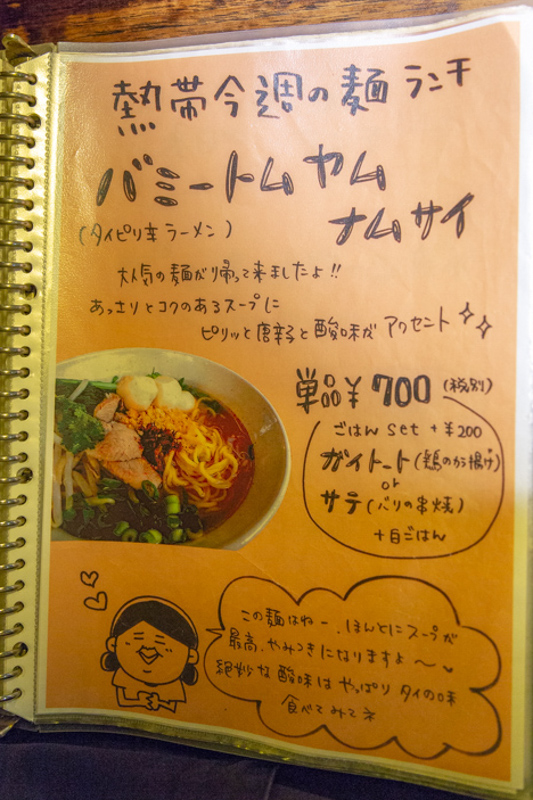 熱帯今週の麺ランチ
バミートムヤム
ナムサイ
(タイピリ辛ラーメン)
大人気の麺がり帰って来ましたよ!!
あっさりとコクのあるスープに
ピリッと唐辛子と酸味がアクセント
単品¥700(税別)
ごはんset+¥200
ガイトート(鶏のから揚げ)
or
サテ(バリの串焼)
+白ごはん
この麺はねー、ほんとにスープが
最高、やみつきになりますよ〜
絶妙な酸味はやっぱりタイの味
食べてみてネ